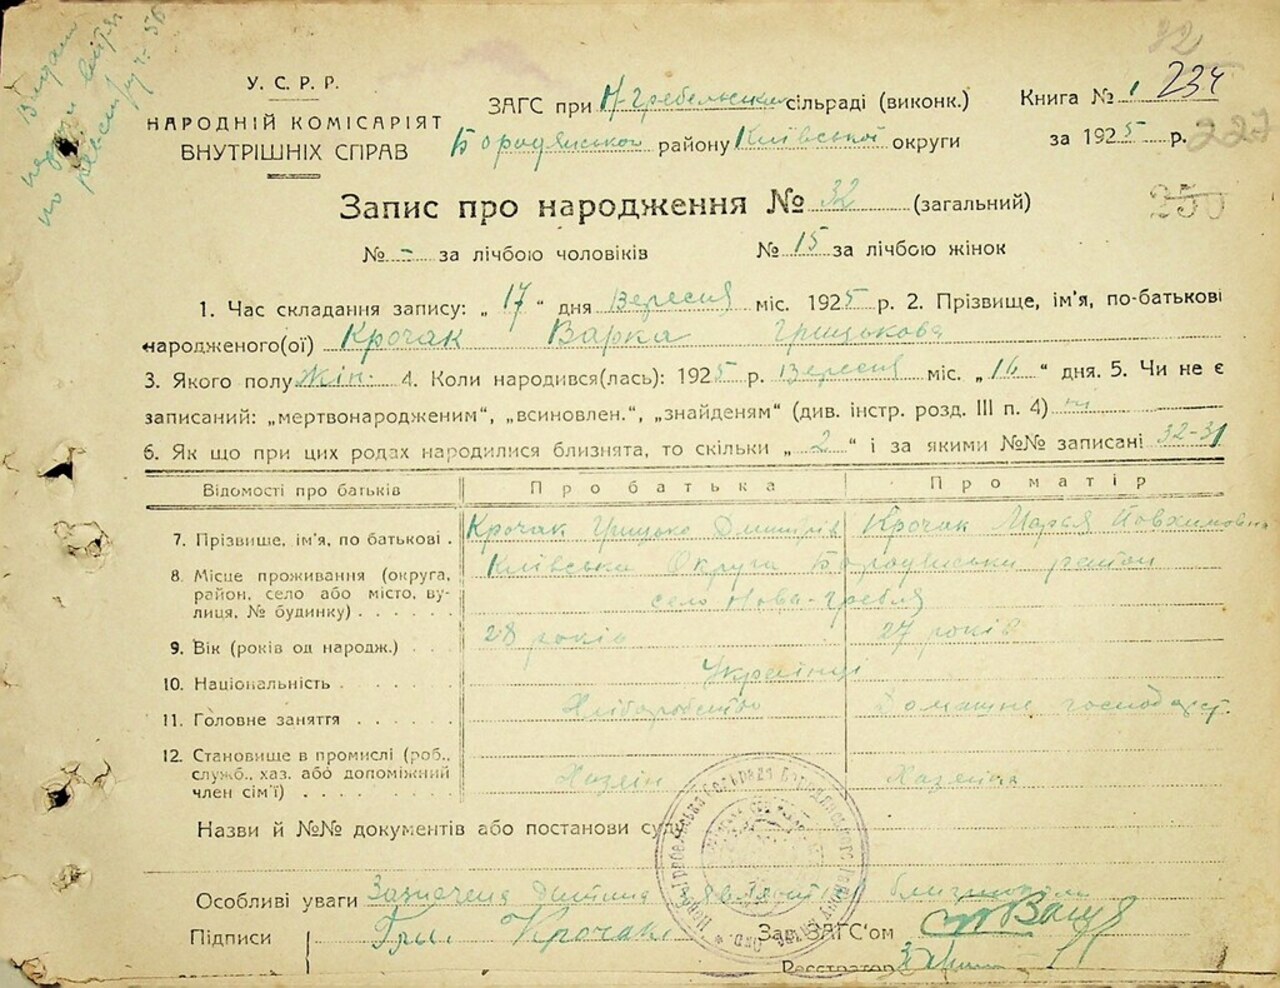 32
У. С. Р. Р.
НАРОДНІЙ КОМІСАРІЯТ
ВНУТРІШНІХ СПРАВ
ЗАГС при Н-Гребельській сільраді (виконк.)
Бородянського району Київської округи
Книга № 1 234
за 1925 р. 227
Запис про народження № 32 (загальний)
250
№ - за лічбою чоловіків № 15 за лічбою жінок
1. Час складання запису: „ 17 “ дня Вересня міс. 1925 р. 2. Прізвище, ім'я, по-батькові
народженого(ої) Крочак Варка Грицькова
3. Якого полу Жін. 4. Коли народився(лась): 1925 р. Вересня міс. „ 16 “ дня. 5. Чи не є
записаний: „мертвонародженим“, „всиновлен.“, „знайденям“ (див. інстр. розд. III п. 4) ні
6. Як що при цих родах народилися близнята, то скільки „ 2 “ і за якими №№ записані 32-31
Відомості про батьків Про батька Про матір
7. Прізвише, ім'я, по батькові . Крочак Грицько Дмитрів Крочак Марья Йовхимовна
8. Місце проживання (округа, Київська Округа Бородянський район
район, село або місто, ву- село Нова-Гребля
лиця, № будинку)
9. Вік (років од народж.) 28 років 27 років
10. Національність Українці
11. Головне заняття Хліборобство Домашнє господарст.
12. Становище в промислі (роб.,
служб., хаз. або допоміжний Хазяін Хазяйка
член сім'ї)
Назви й №№ документів або постанови суду
Особливі уваги Зазначена Дитина являється близнюком
Підписи Гри. Крочак Зав. ЗАГС'ом
Реєстратор